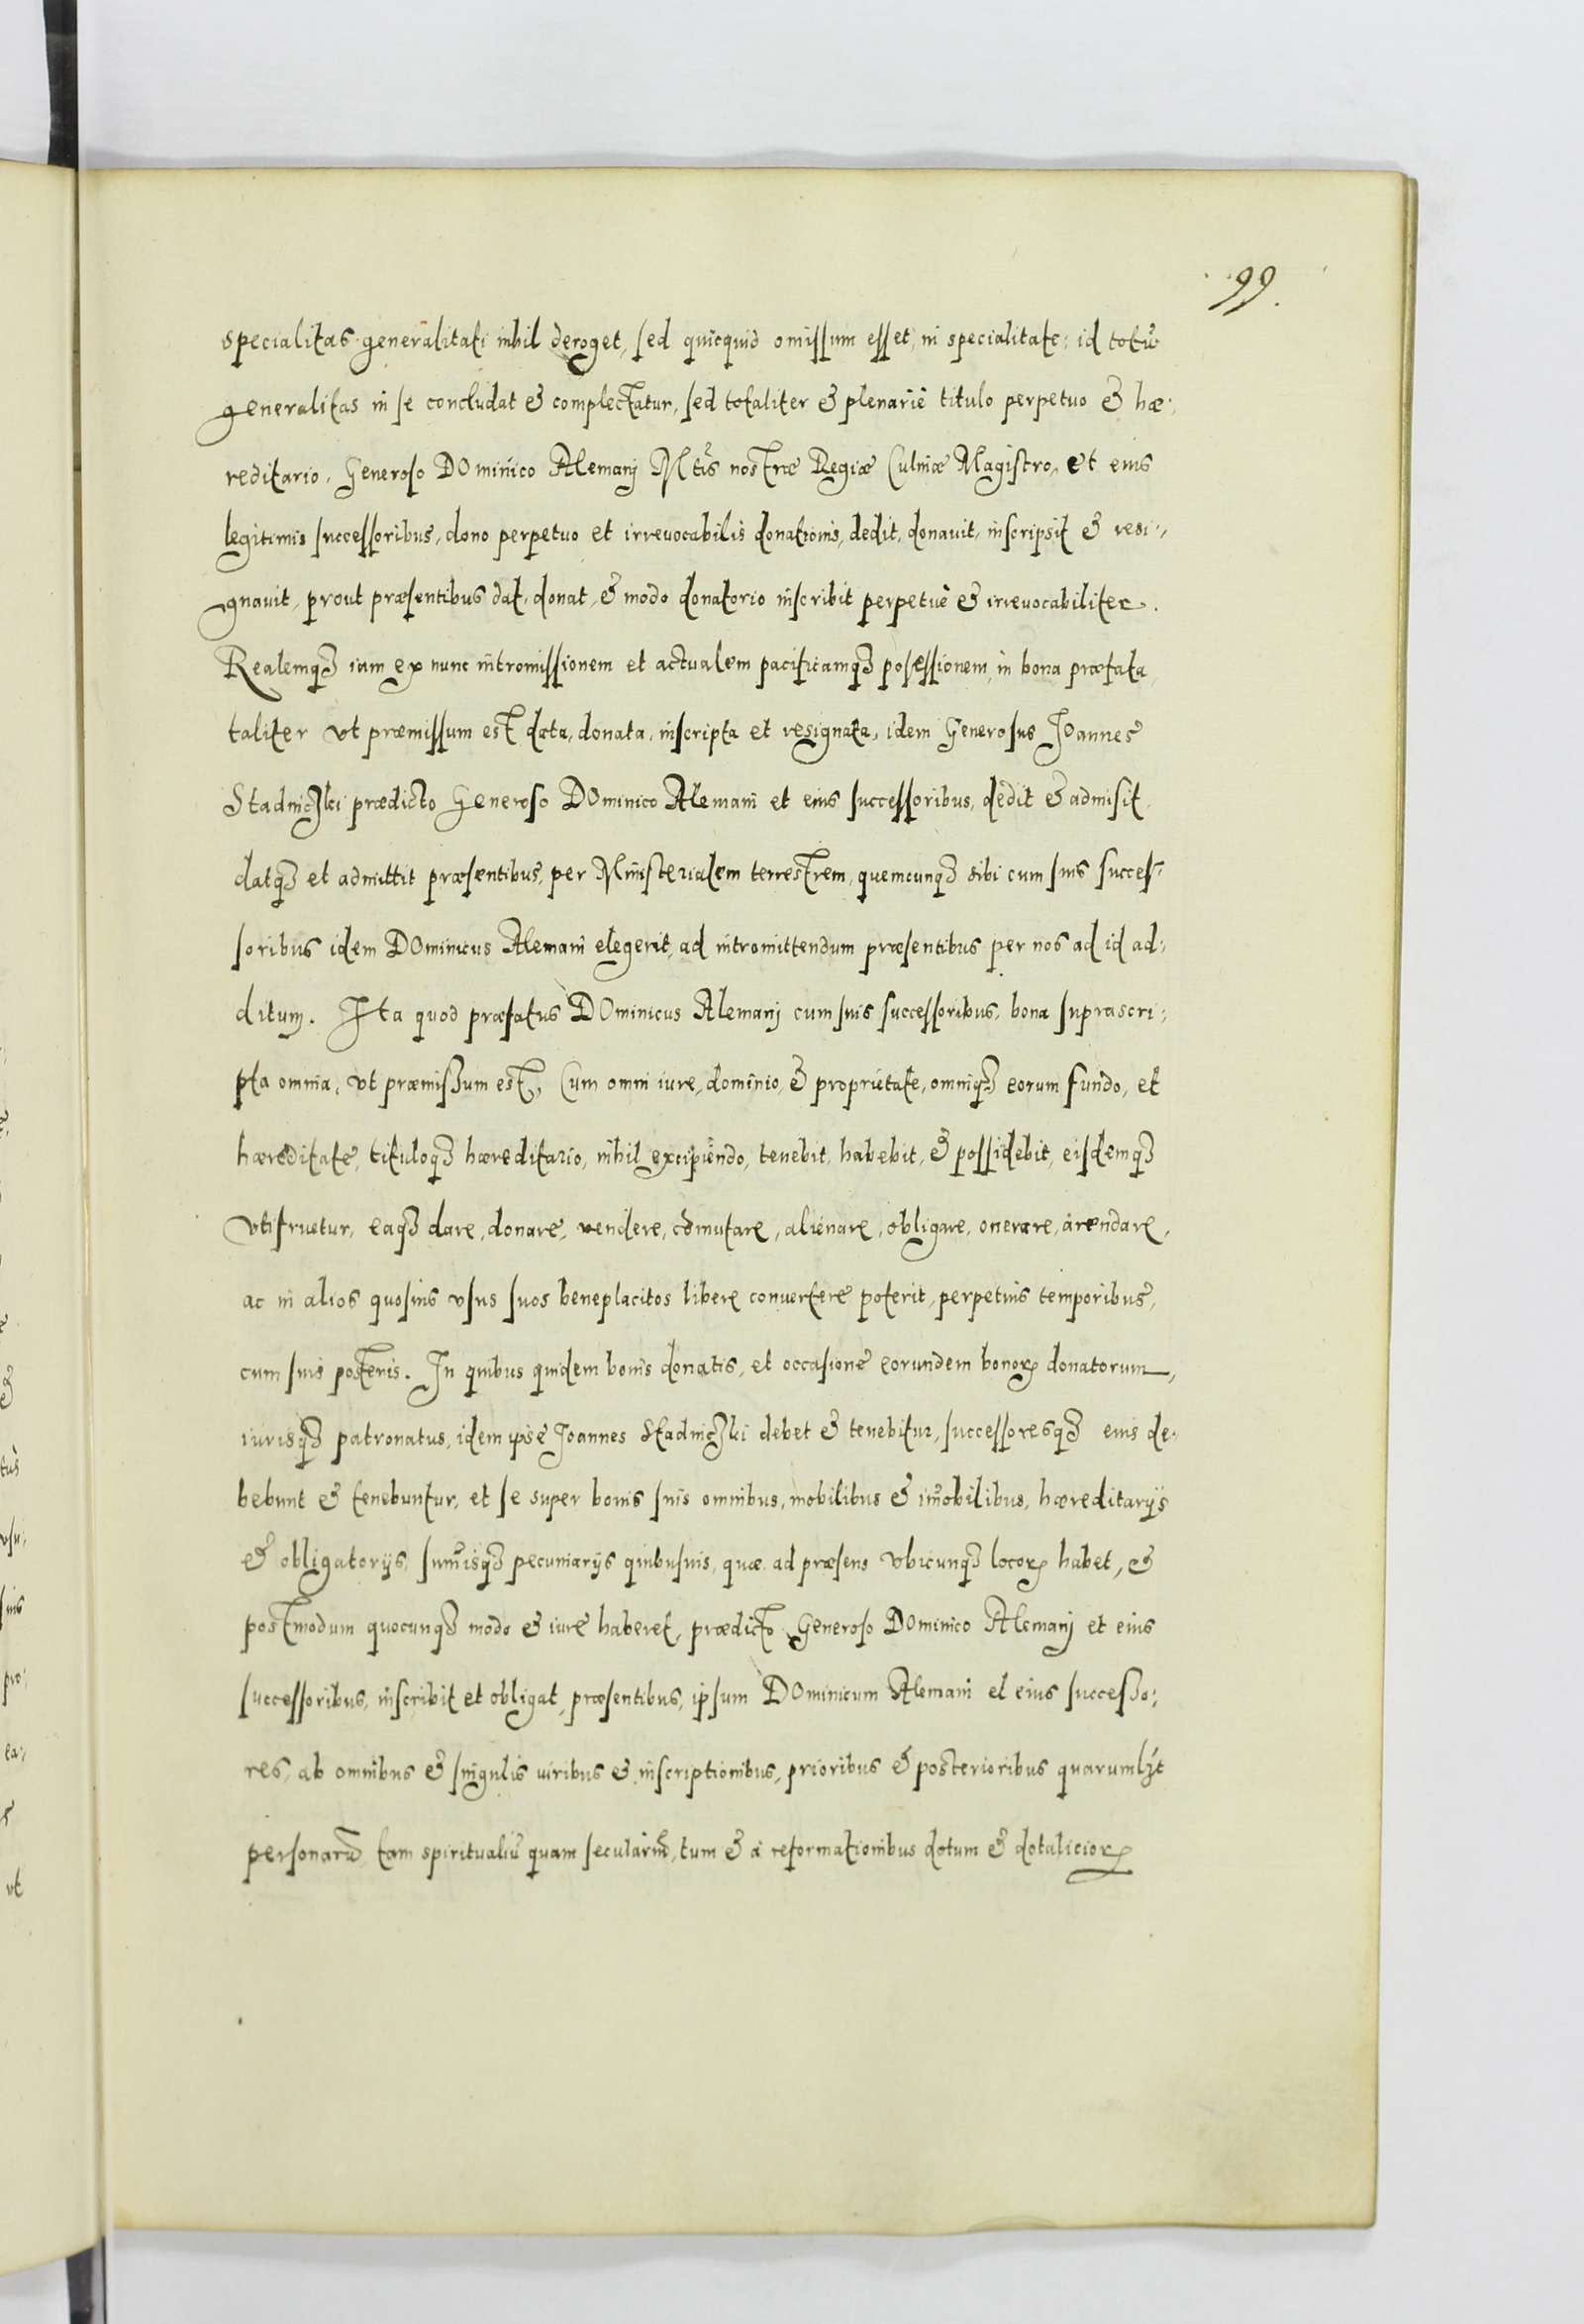 99.
specialitas generalitati nihil deroget, sed quicquid omissum esset, in specialitate: id totũ
generalitas in se concludat & complectatur, sed totaliter & plenariè titulo perpetuo & hæ:
reditario, Generoso DOminico Alemanj Mtis nostræ Regiæ Culinæ Magistro, et eius
legitimis successoribus, dono perpetuo et irreuocabilis donationis, dedit, donauit, inscripsit & resi:
gnauit, prout præsentibus dat, donat, & modo donatorio inscribit perpetuè & irreuocabiliter.
Realemq3 iam ex nunc intromissionem et actualem pacificamq3 possessionem, in bona præfata
taliter vt præmissum est data, donata, inscripta et resignata, idem Generosus Joannes
Stadniczki prædicto Generoso DOminico Alemani et eius successoribus, dedit & admisit
datq3 et admittit præsentibus, per Ministerialem terrestrem, quemcunq3 sibi cum suis succes:
soribus idem DOminicus Alemani elegerit, ad intromittendum præsentibus per nos ad id ad:
ditum. Ita quod præfatus DOminicus Alemanj cum suis successoribus, bona suprascri:
pta omnia, vt præmissum est, Cum omni iure, dominio, & proprietate, omniq3 eorum fundo, et
hæreditate, tituloq3 hæreditario, nihil excipiendo, tenebit, habebit, & possidebit, eisdemq3
vtifruetur, eaq3 dare, donare, vendere, cõmutare, alienare, obligare, onerare, arendare,
ac in alios quosuis vsus suos beneplacitos libere conuertere poterit, perpetuis temporibus,
cum suis posteris. In quibus quidem bonis donatis, et occasione eorundem bonorꝝ donatorum,
iurisq3 patronatus, idem ipse Joannes Stadniczki debet & tenebitur, successoresq3 eius de:
bebunt & tenebuntur, et se super bonis suis omnibus, mobilibus & im̃obilibus, hæreditarijs
& obligatorijs, sum̃isq3 pecuniarijs quibusuis, quæ ad præsens vbicunq3 locorꝝ habet, &
postmodum quocunq3 modo & iure haberet, prædicto Generoso DOminico Alemanj et eius
successoribus, inscribit et obligat, præsentibus, ipsum DOminicum Alemani et eius successo:
res, ab omnibus & singulis iuribus & inscriptionibus, prioribus & posterioribus quarumlzt
personarũ tam spiritualiũ quam seculariũ, tum & à reformationibus dotum & dotaliciorꝝ